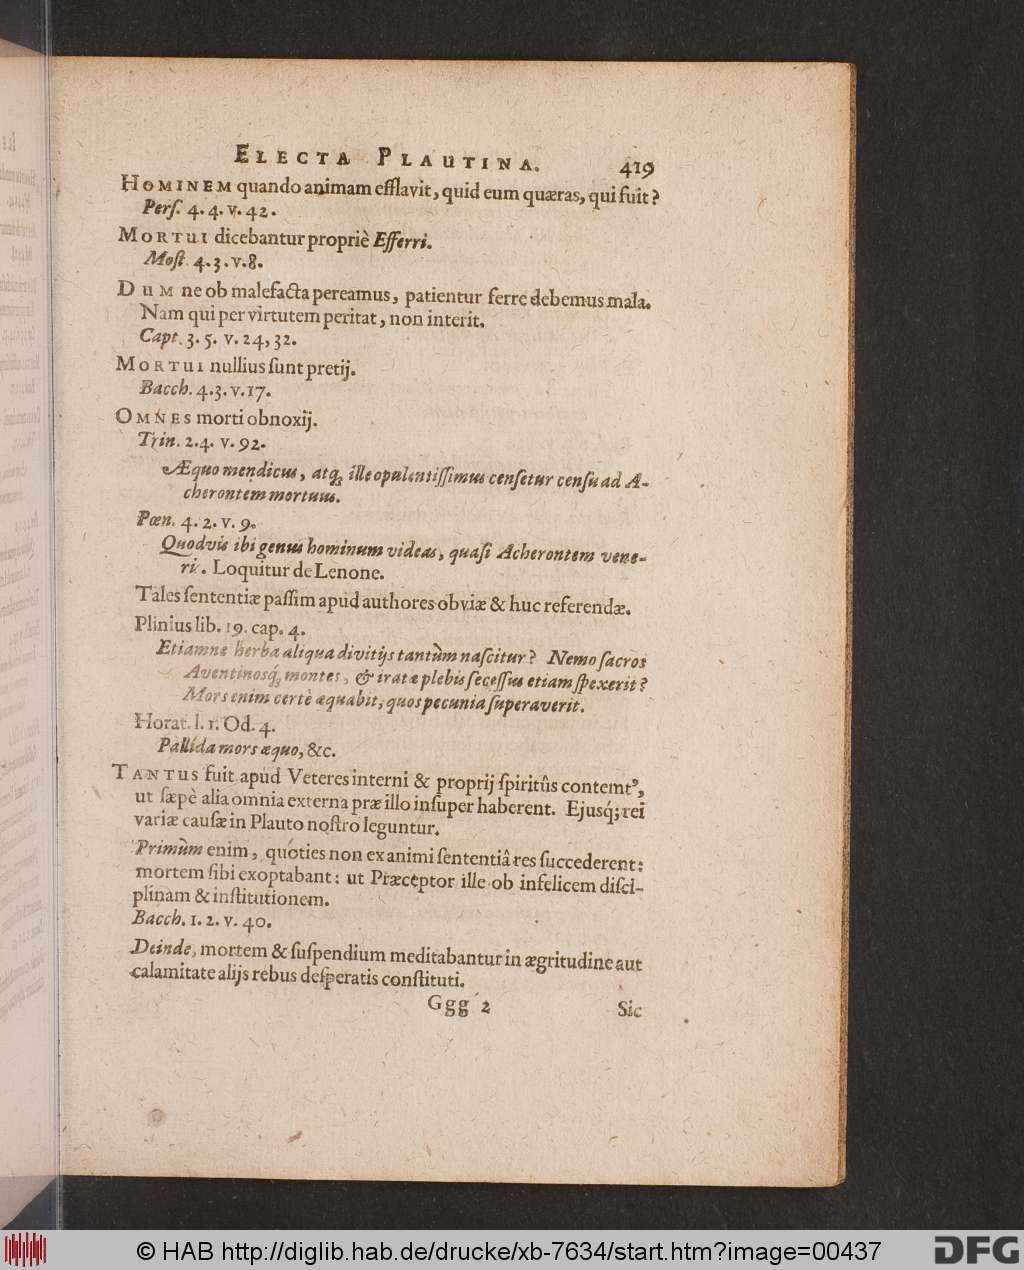 ELECTA PLAUTINA. 419
HOMINEM quando animam efflavit, quid eum quæras, qui fuit?
Perſ. 4. 4. v. 42.
MORTUI dicebantur propriè Efferri.
Moſt. 4. 3. v. 8.
DUM ne ob malefacta pereamus, patientur ferre debemus mala.
Nam qui per virtutem peritat, non interit.
Capt. 3. 5. v. 24, 32.
MORTUI nullius ſunt pretij.
Bacch. 4. 3. v. 17.
OMNES morti obnoxij.
Trin. 2. 4. v. 92.
Æquo mendicus, atq; ille opulentiſſimus cenſetur cenſu ad A-
cherontem mortuus.
Pœn. 4. 2. v. 9.
Quodvis ibi genus hominum videas, quaſi Acherontem vene-
ris. Loquitur de Lenone.
Tales ſententiæ paſſim apud authores obviæ & huc referendæ.
Plinius lib. 19. cap. 4.
Etiamne herba aliqua divitijs tantùm naſcitur? Nemo ſacros
Aventinosq́; montes, & iratæ plebis ſeceſſus etiam ſpexerit?
Mors enim certè æquabit, quos pecunia ſuperaverit.
Horat. l. 1. Od. 4.
Pallida mors æquo, &c.
TANTUS fuit apud Veteres interni & proprij ſpiritûs contemtꝰ,
ut ſæpè alia omnia externa præ illo inſuper haberent. Ejusq́; rei
variæ cauſæ in Plauto noſtro leguntur.
Primùm enim, quóties non ex animi ſententiâ res ſuccederent:
mortem ſibi exoptabant: ut Præceptor ille ob infelicem diſci-
plinam & inſtitutionem.
Bacch. 1. 2. v. 40.
Deinde, mortem & ſuſpendium meditabantur in ægritudine aut
calamitate alijs rebus deſperatis conſtituti.
Ggg 2 Sic
© HAB http://diglib.hab.de/drucke/xb-7634/start.htm?image=00437
DFG